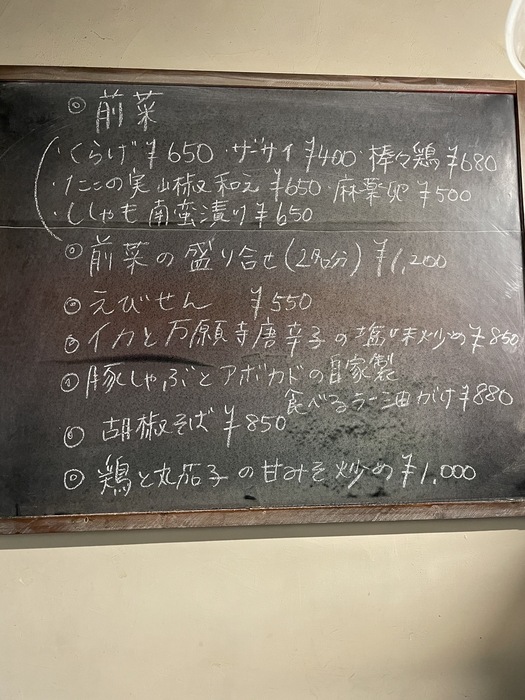 ◎前菜
・くらげ ¥650 ・ザーサイ ¥400 ・棒々鶏 ¥680
・たこの実山椒和え ¥650 ・麻薬卵 ¥500
・ししゃも南蛮漬け ¥650
◎前菜の盛り合せ(2名分) ¥1,200
◎えびせん ¥550
◎イカと万願寺唐辛子の塩味炒め ¥850
◎豚しゃぶとアボカドの自家製
食べるラー油がけ ¥880
◎胡椒そば ¥850
◎鶏と丸茄子の甘みそ炒め ¥1,000